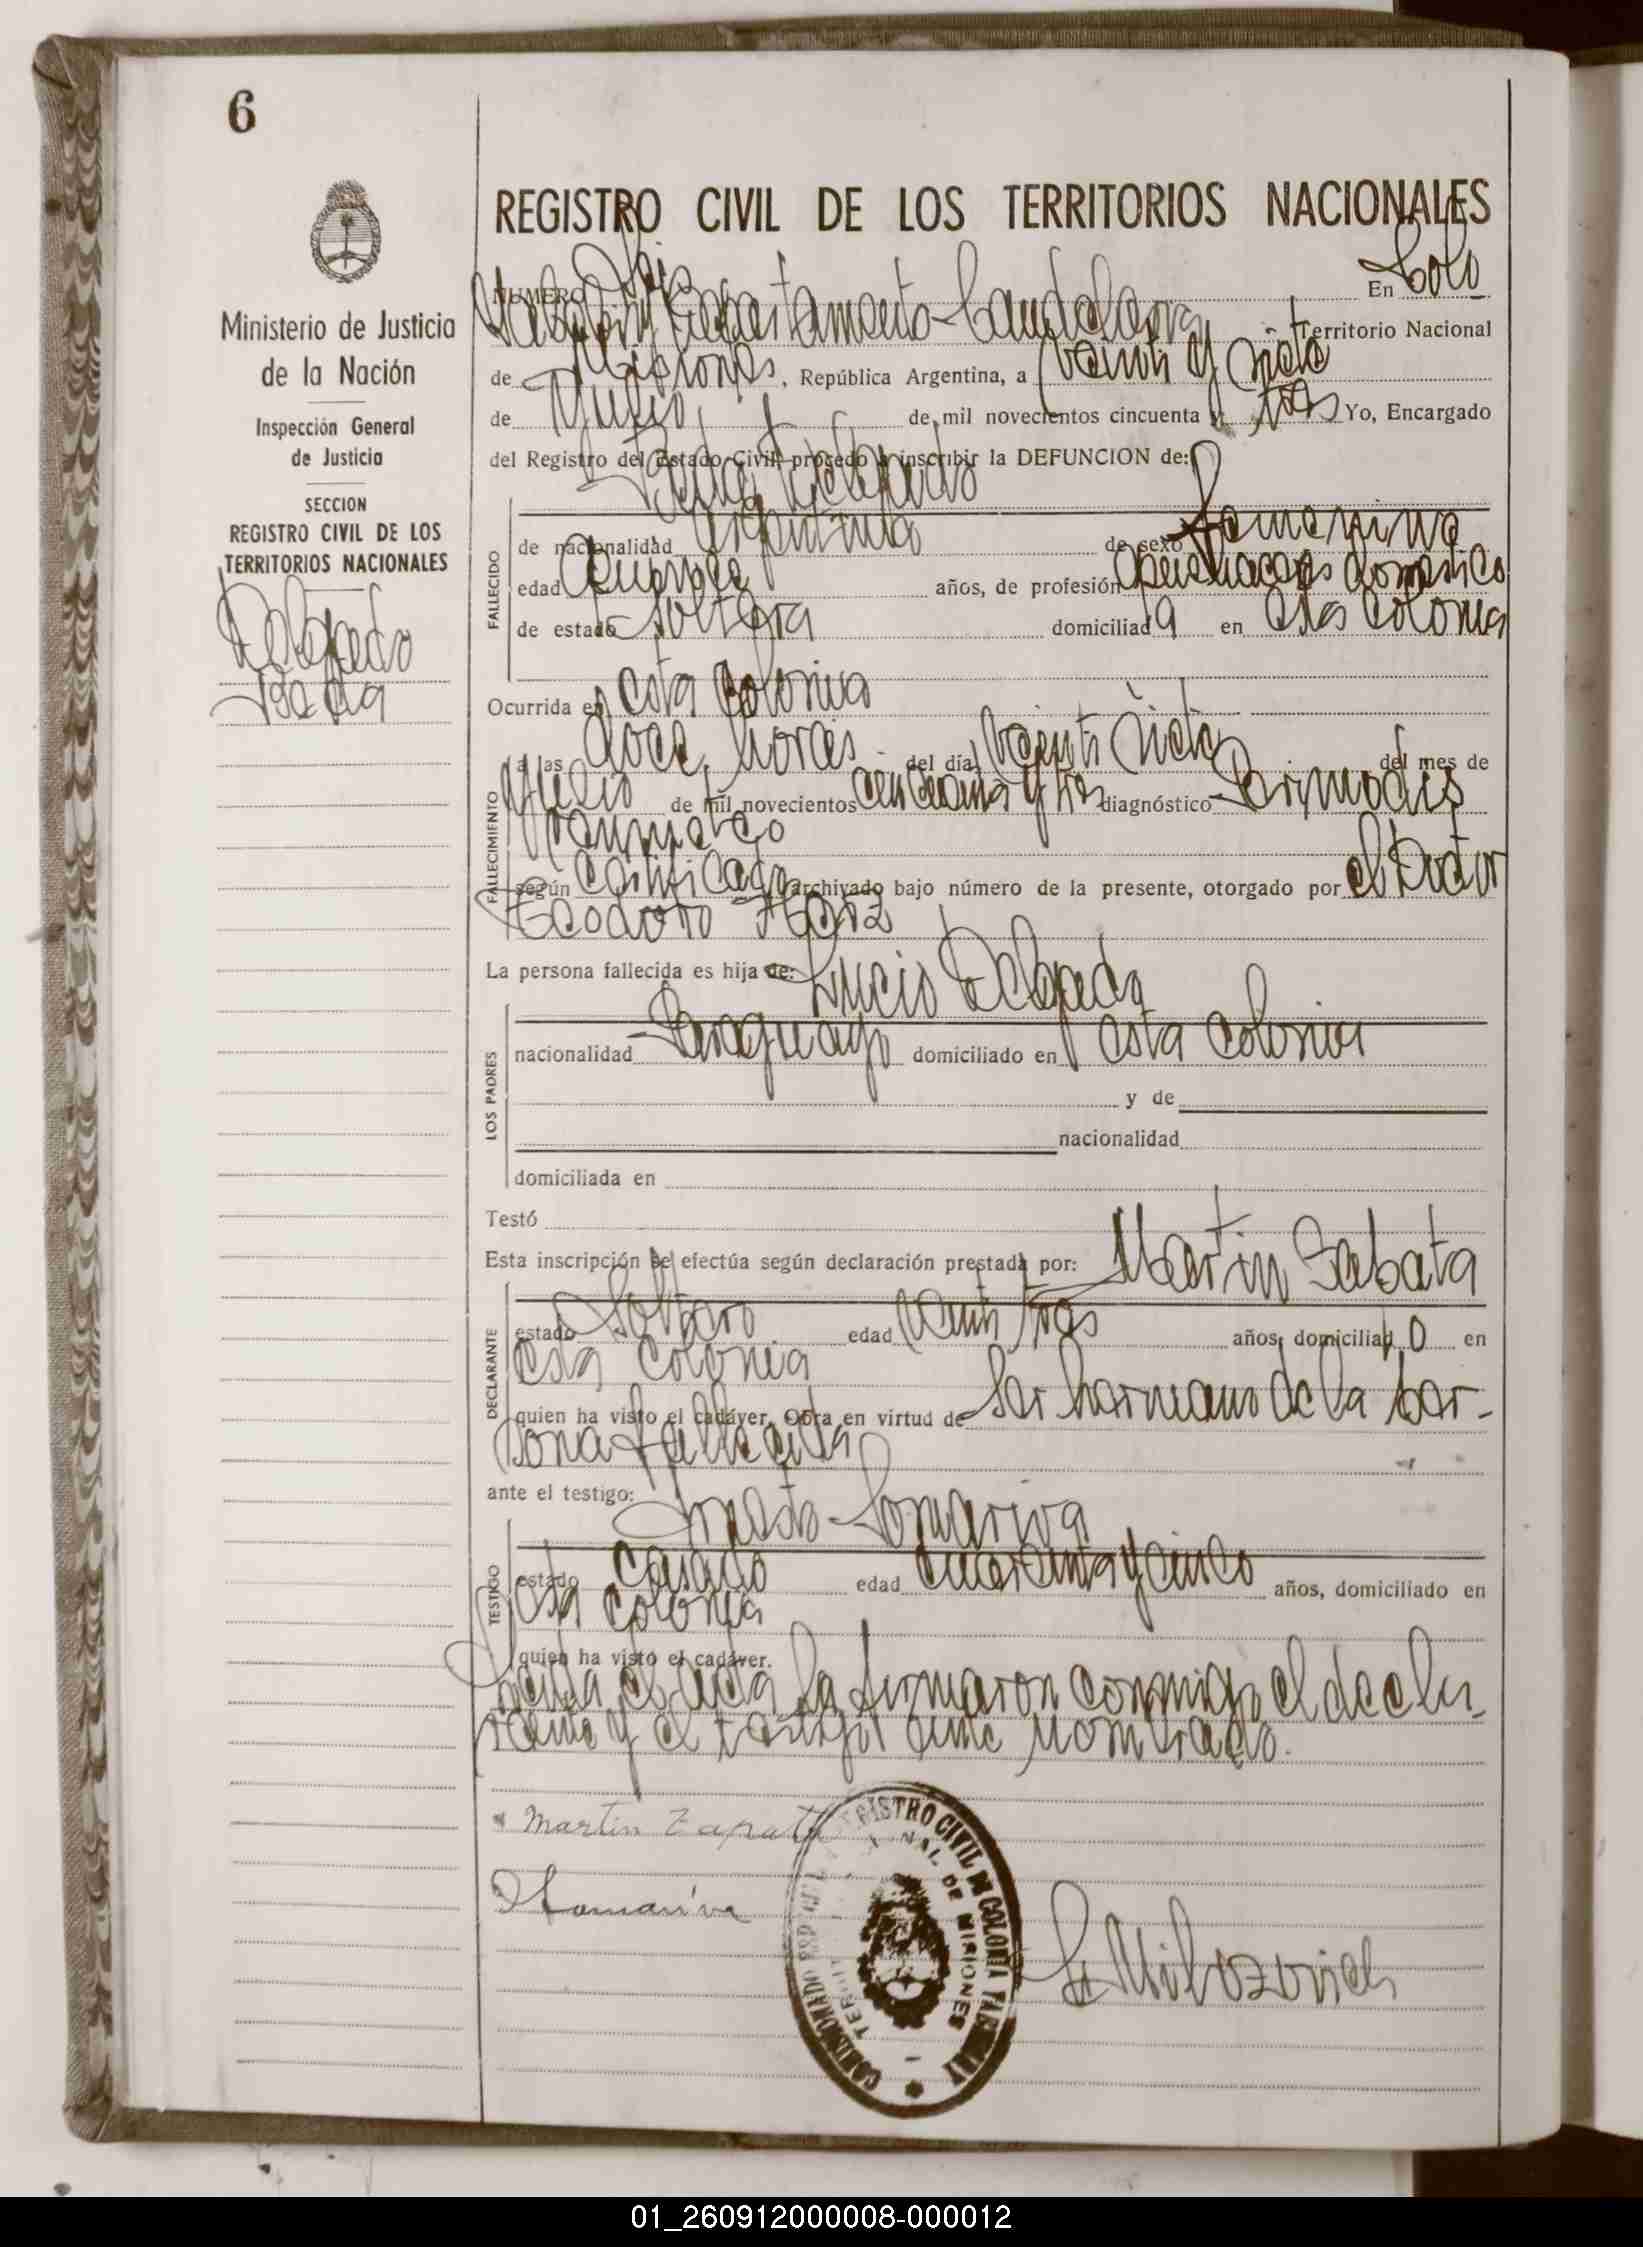 6
REGISTRO CIVIL DE LOS TERRITORIOS NACIONALES
Ministerio de Justicia
de la Nación
Inspección General
de Justicia
SECCION
REGISTRO CIVIL DE LOS
TERRITORIOS NACIONALES
Delgado
NUMERO Seis En Colo
Departamento Candelaria Territorio Nacional
de Misiones, República Argentina, a Veinti y siete
de Julio de mil novecientos cincuenta y tres Yo, Encargado
del Registro del Estado Civil, procedo a inscribir la DEFUNCION de:
FALLECIDO
de nacionalidad Argentina de sexo Femenino
edad años, de profesión domestico
de estado Soltera domiciliada en esta colonia
Ocurrida en esta colonia
FALLECIMIENTO
a las doce horas del día Veinti siete del mes de
Julio de mil novecientos cincuenta y tres diagnóstico
según certificado archivado bajo número de la presente, otorgado por el Doctor
Teodoro
La persona fallecida es hija de: Lucio Delgado
LOS PADRES
nacionalidad Paraguayo domiciliado en esta colonia
y de
nacionalidad
domiciliada en
Testó
Esta inscripción se efectúa según declaración prestada por: Martin Sabata
DECLARANTE
estado Soltero edad Veinti tres años, domiciliado en
esta colonia
quien ha visto el cadáver. Obra en virtud de ser hermano de la per-
sona fallecida
ante el testigo: Somariva
TESTIGO
estado casado edad cuarenta y cinco años, domiciliado en
esta colonia
quien ha visto el cadáver.
la firmaron conmigo el decla
rante y el testigo nombrado.
Martin Zapata
Somariva
REGISTRO CIVIL DE COLONIA
DE MISIONES
01_260912000008-000012